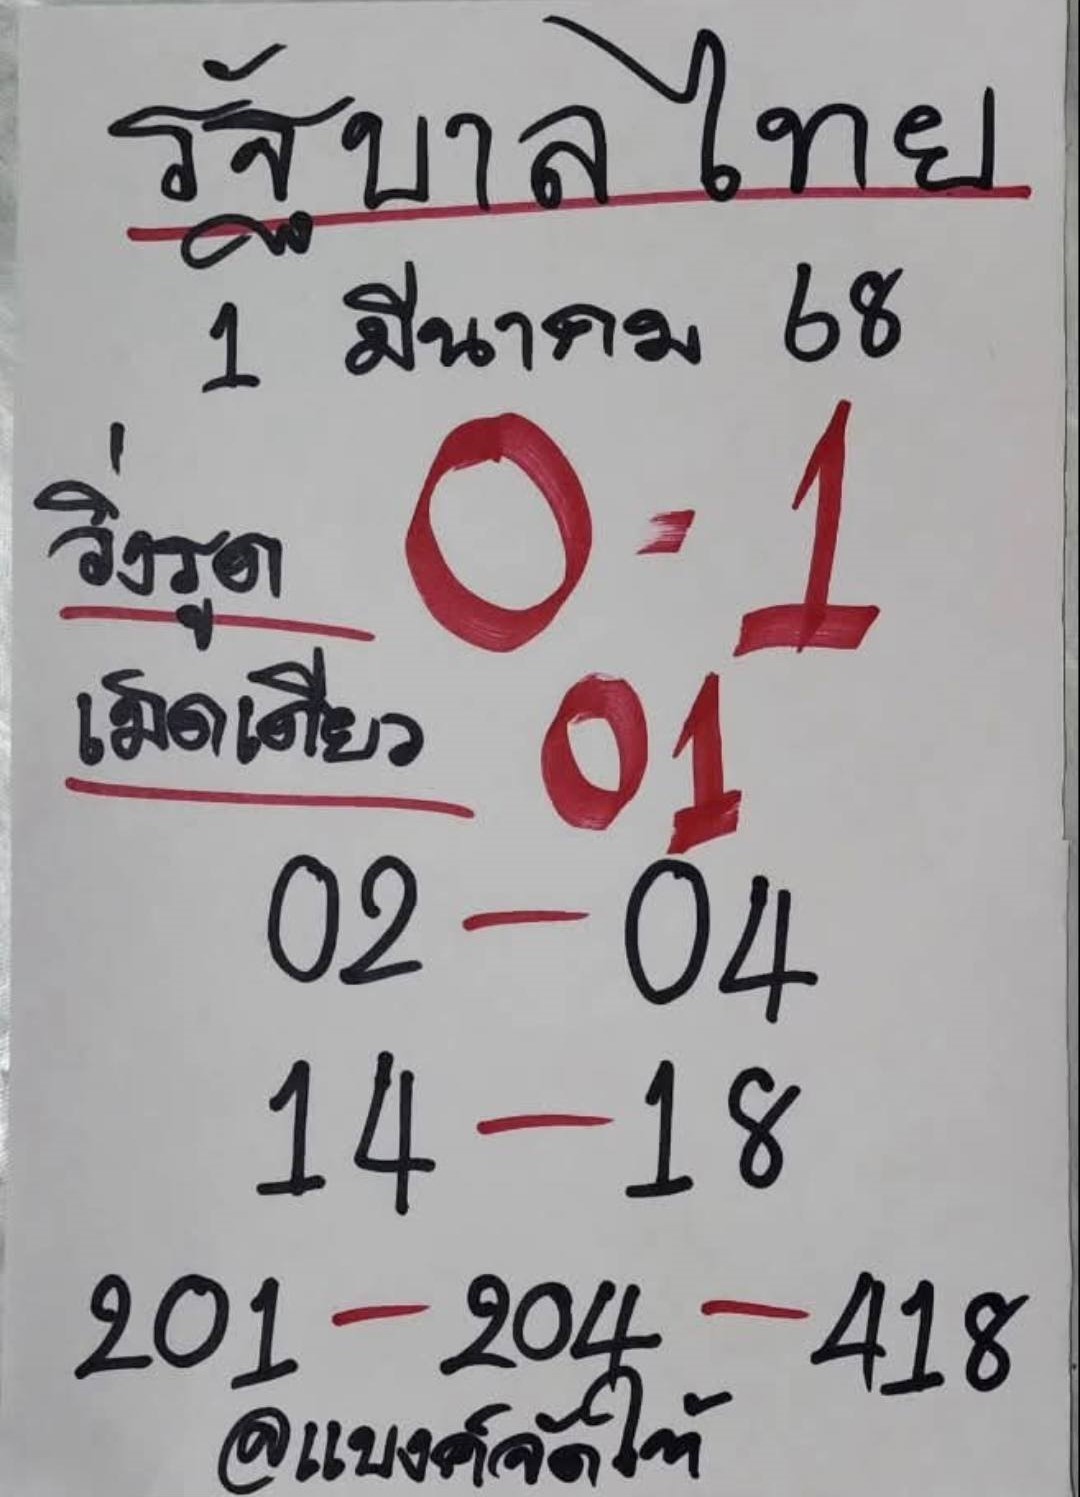 รัฐบาลไทย
1 มีนาคม 68
วิ่งรูด 0-1
เม็ดเดียว 01
02-04
14-18
201-204-418
@แบงค์จัดให้